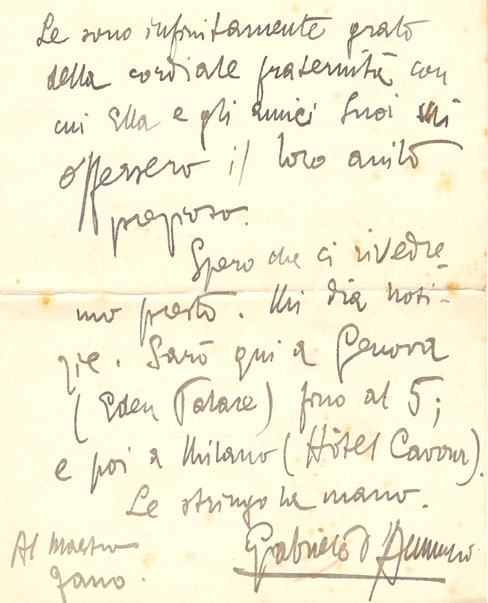 Le sono infinitamente grato
della cordiale fraternità con
cui Ella e gli amici Suoi mi
offersero il loro aiuto
prezioso.
Spero che ci rivedre-
mo presto. Mi dia noti-
zie. Sarò qui a Genova
(Eden Palace) fino al 5;
e poi a Milano (Hôtel Cavour).
Le stringo la mano.
Gabriele d'Annunzio
Al Maestro
Zano.